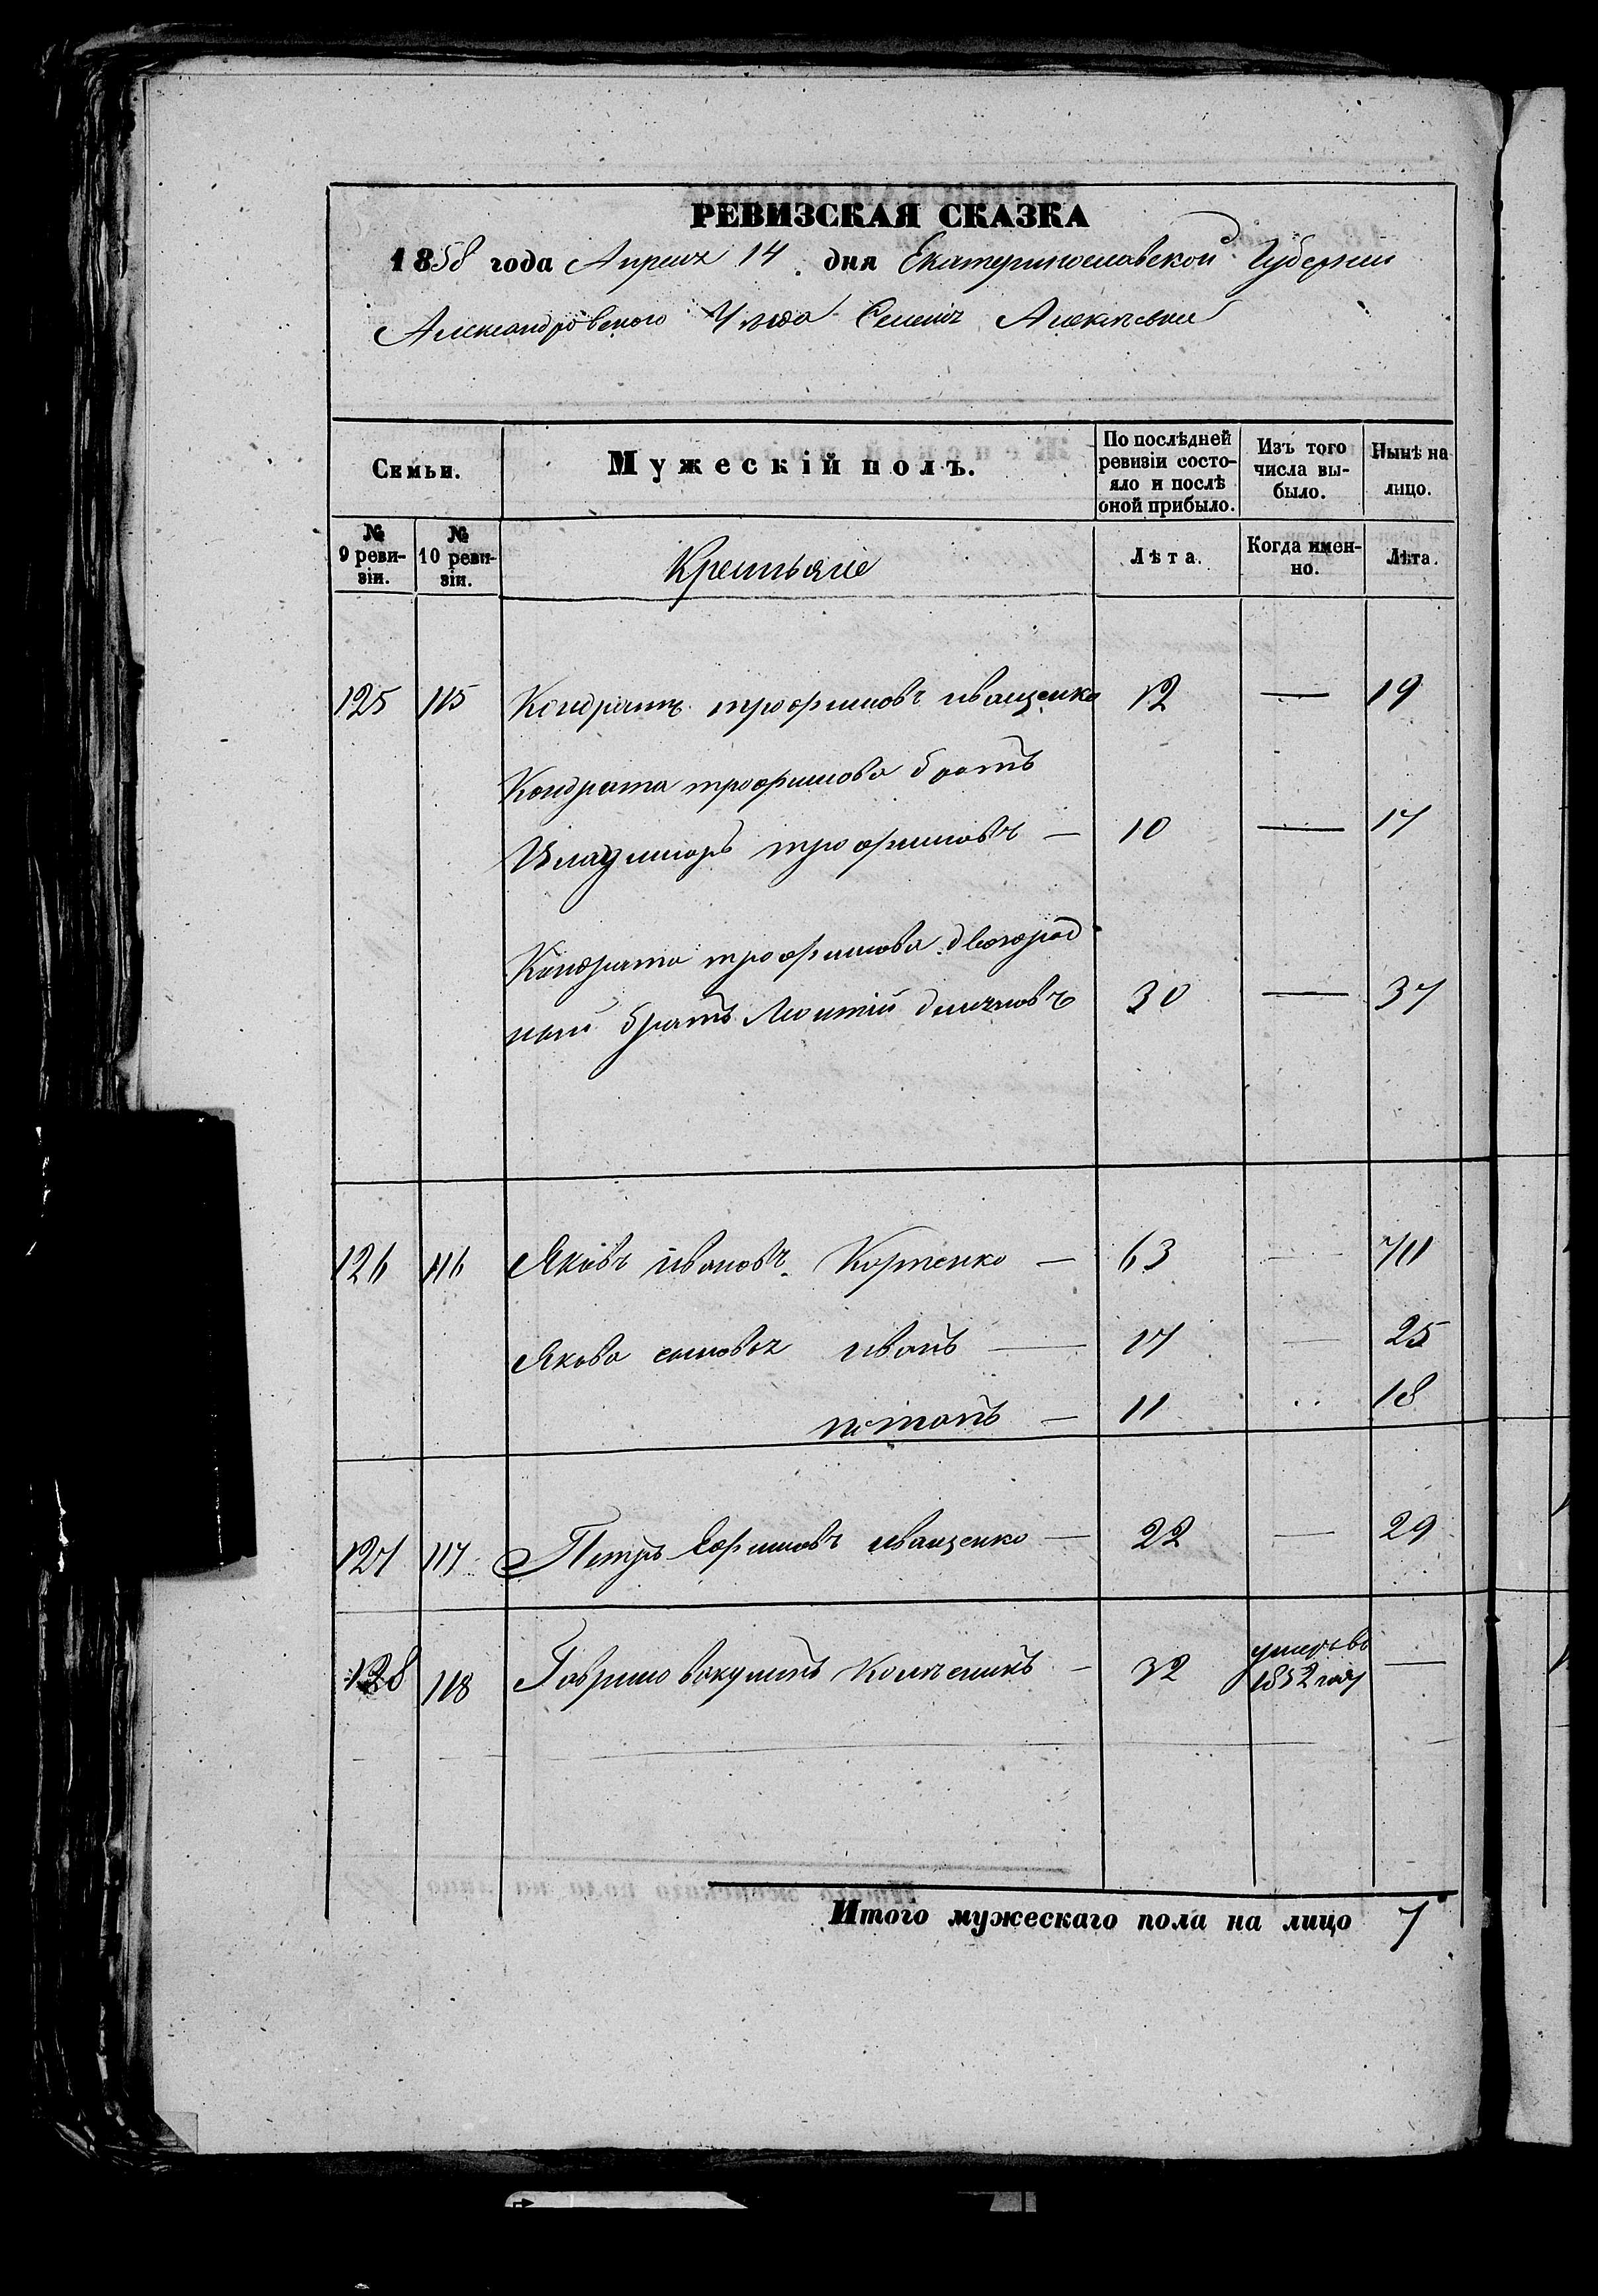 РЕВИЗСКАЯ СКАЗКА
1858 года Апреля 14 дня Екатеринославской Губернии
Александровского Уезда Селения Алексеевки
Семьи.
Мужескій полъ.
По послѣдней ревизіи состояло и послѣ оной прибыло.
Изъ того числа выбыло.
Нынѣ на лицо.
№ 9 ревизіи.
№ 10 ревизіи.
Крестьяне
Лѣта.
Когда именно.
Лѣта.
125 115 Кондратъ трофимовъ иващенко 12 — 19
Кондрата трофимова братъ
Владимиръ трофимовъ — 10 — 17
Кондрата трофимова двоюрод
ный братъ 30 — 37
126 116 Яковъ ивановъ — 63 — 70
Якова сыновья иванъ — 17 — 25
потапъ — 11 18
127 117 Петръ Ефимовъ иващенко — 22 — 29
128 118 Гаврило вакулинъ — 32 умеръ въ 1852 году —
Итого мужескаго пола на лицо 7